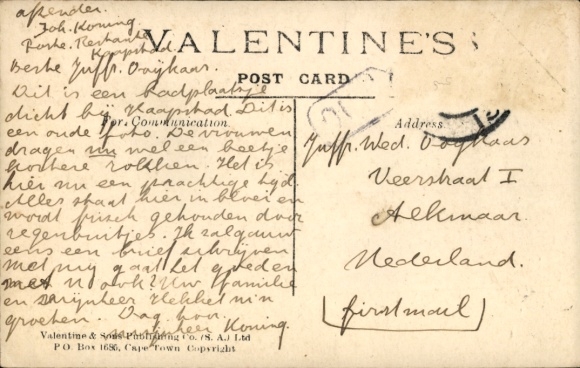 afzender.
Joh. Koning.
Poste. Restante
Kaapstad.
VALENTINE'S
POST CARD
For Communication
Address
Beste Juffr. Ooykaas.
Dit is een badplaatsje
dicht bij Kaapstad. Dit is
een oude foto. De vrouwen
dragen nu wel een beetje
kortere rokken. Het is
hier nu een prachtige tijd.
Alles staat hier in bloei en
wordt frisch gehouden door
regenbuitjes. Ik zal gauw
eens een brief schrijven
met mij gaat het goed en
met U ook? Uw familie
en mijnheer Hekket mijn
groeten. Dag hoor.
mijnheer Koning.
Juffr. Wed. Ooykaas
Veerstraat I
Alkmaar.
Nederland.
(first mail)
Valentine & Sons Publishing Co. (S. A.) Ltd
P O. Box 1685, Cape Town Copyright